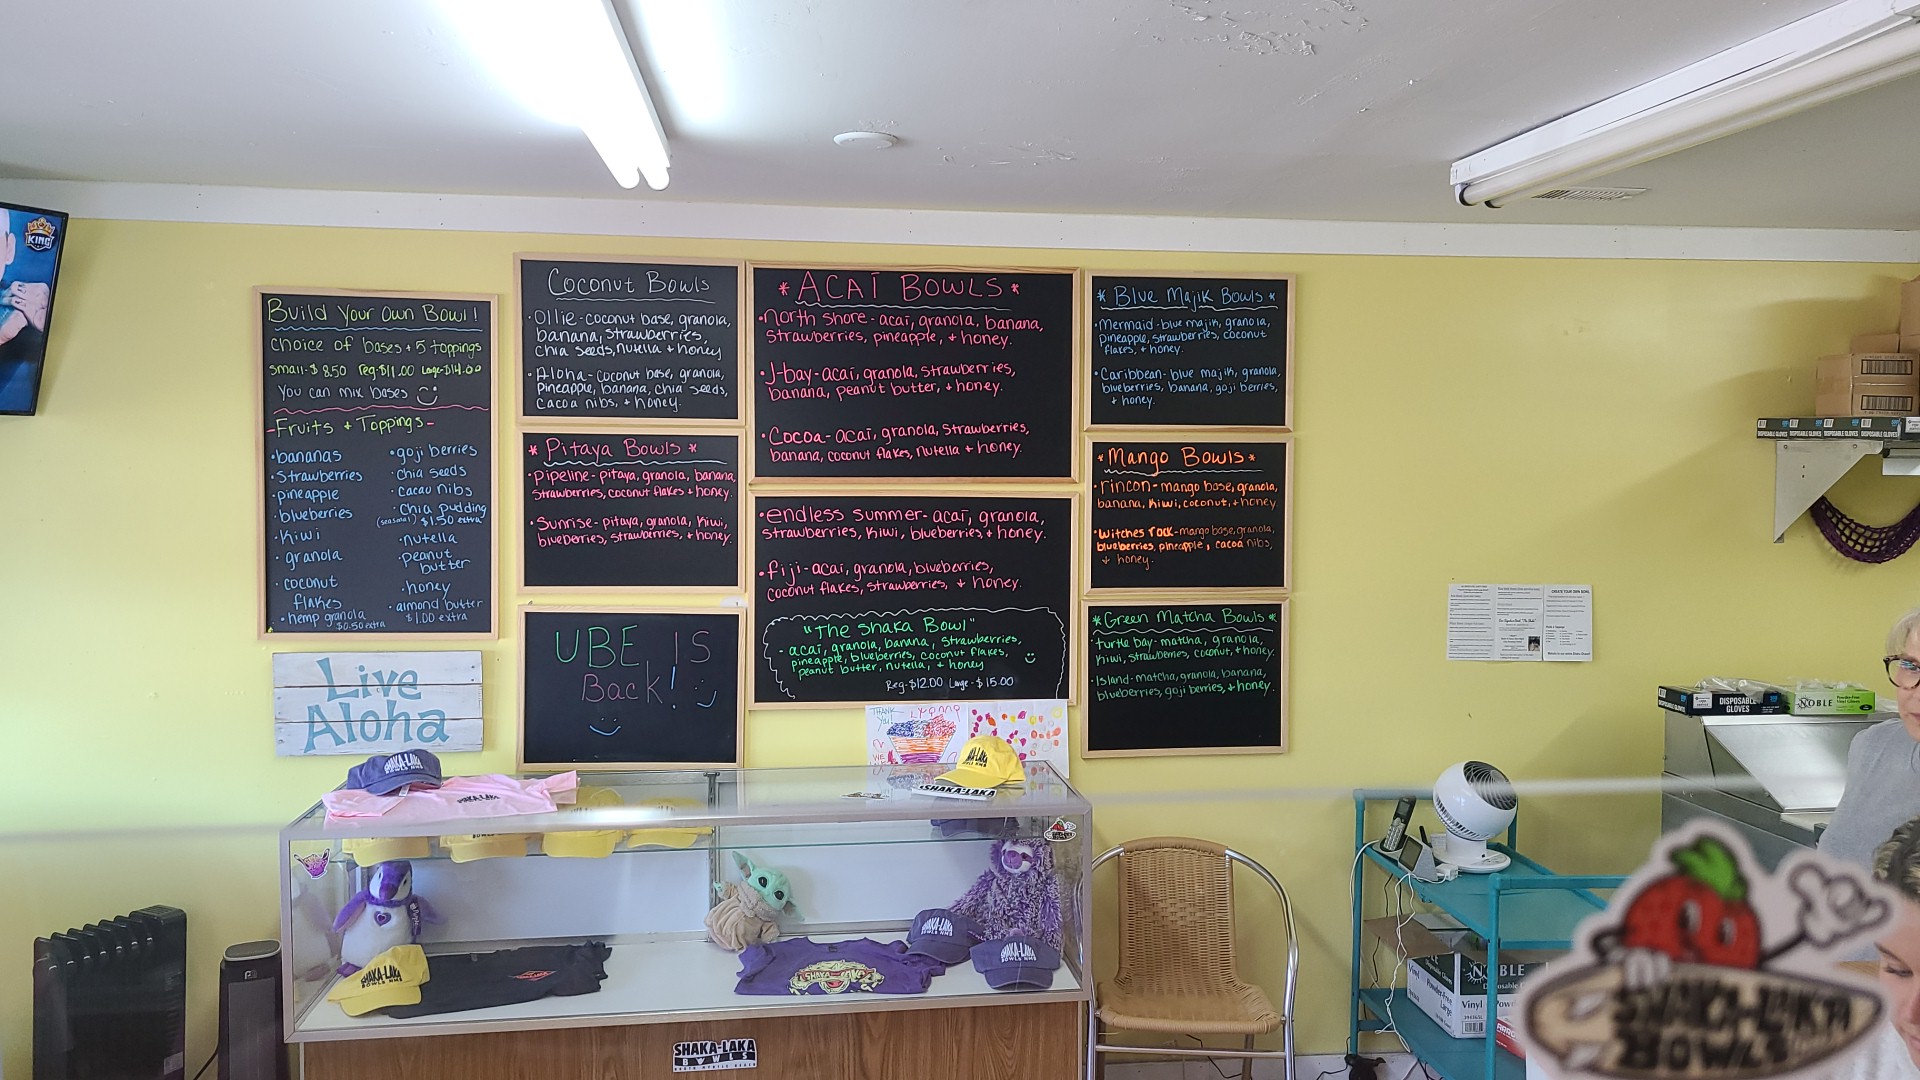 KING
Build Your Own Bowl!
choice of bases + 5 toppings
small-$8.50 Reg-$11.00 Large-$14.00
You can mix bases
-Fruits + Toppings-
•bananas
•Strawberries
•pineapple
•blueberries
•Kiwi
•granola
•coconut
flakes
•hemp granola
$0.50 extra
•goji berries
•chia seeds
•cacao nibs
•chia pudding
(seasonal) $1.50 extra
•nutella
•peanut
butter
•honey
•almond butter
$1.00 extra
Live
Aloha
Coconut Bowls
•Ollie-coconut base, granola,
banana, strawberries,
chia seeds, nutella + honey
•Aloha-coconut base, granola,
pineapple, banana, chia seeds,
cacoa nibs, + honey.
* Pitaya Bowls *
•pipeline-pitaya, granola, banana,
strawberries, coconut flakes + honey.
•Sunrise-pitaya, granola, kiwi,
blueberries, strawberries, + honey.
UBE IS
Back!
* ACAÍ BOWLS *
•north shore-acaí, granola, banana,
strawberries, pineapple, + honey.
•J-bay-acaí, granola, strawberries,
banana, peanut butter, + honey.
•Cocoa-acaí, granola, strawberries,
banana, coconut flakes, nutella + honey.
•endless summer-acaí, granola,
strawberries, kiwi, blueberries, + honey.
•fiji-acaí, granola, blueberries,
coconut flakes, strawberries, + honey.
"The Shaka Bowl"
-acaí, granola, banana, strawberries,
pineapple, blueberries, coconut flakes,
peanut butter, nutella, + honey
Reg-$12.00 Large-$15.00
* Blue Majik Bowls *
•Mermaid-blue majik, granola,
pineapple, strawberries, coconut
flakes, + honey.
•Caribbean-blue majik, granola,
blueberries, banana, goji berries,
+ honey.
* Mango Bowls *
•rincon-mango base, granola,
banana, kiwi, coconut, + honey.
•Witches rock-mango base, granola,
blueberries, pineapple, cacoa nibs,
+ honey.
*Green Matcha Bowls*
•turtle bay-matcha, granola,
kiwi, strawberries, coconut, + honey.
•Island-matcha, granola, banana,
blueberries, goji berries, + honey.
THANK
YOU!
SHAKA-LAKA
BOWLS NMB
SHAKA-LAKA
SHAKA-LAKA
BOWLS NMB
SHAKA-LAKA
SHAKA-LAKA
BOWLS NMB
SHAKA-LAKA
SHAKA-LAKA
BOWLS NMB
SHAKA-LAKA
BOWLS NMB
SHAKA-LAKA
BOWLS
NORTH MYRTLE BEACH
CREATE YOUR OWN BOWL
DISPOSABLE GLOVES
DISPOSABLE GLOVES
DISPOSABLE GLOVES
DISPOSABLE
GLOVES
NOBLE
Powder-Free
Vinyl Gloves
NOBLE
Vinyl
Powder-Free
Large
Vinyl
SHAKA-LAKA
BOWLS